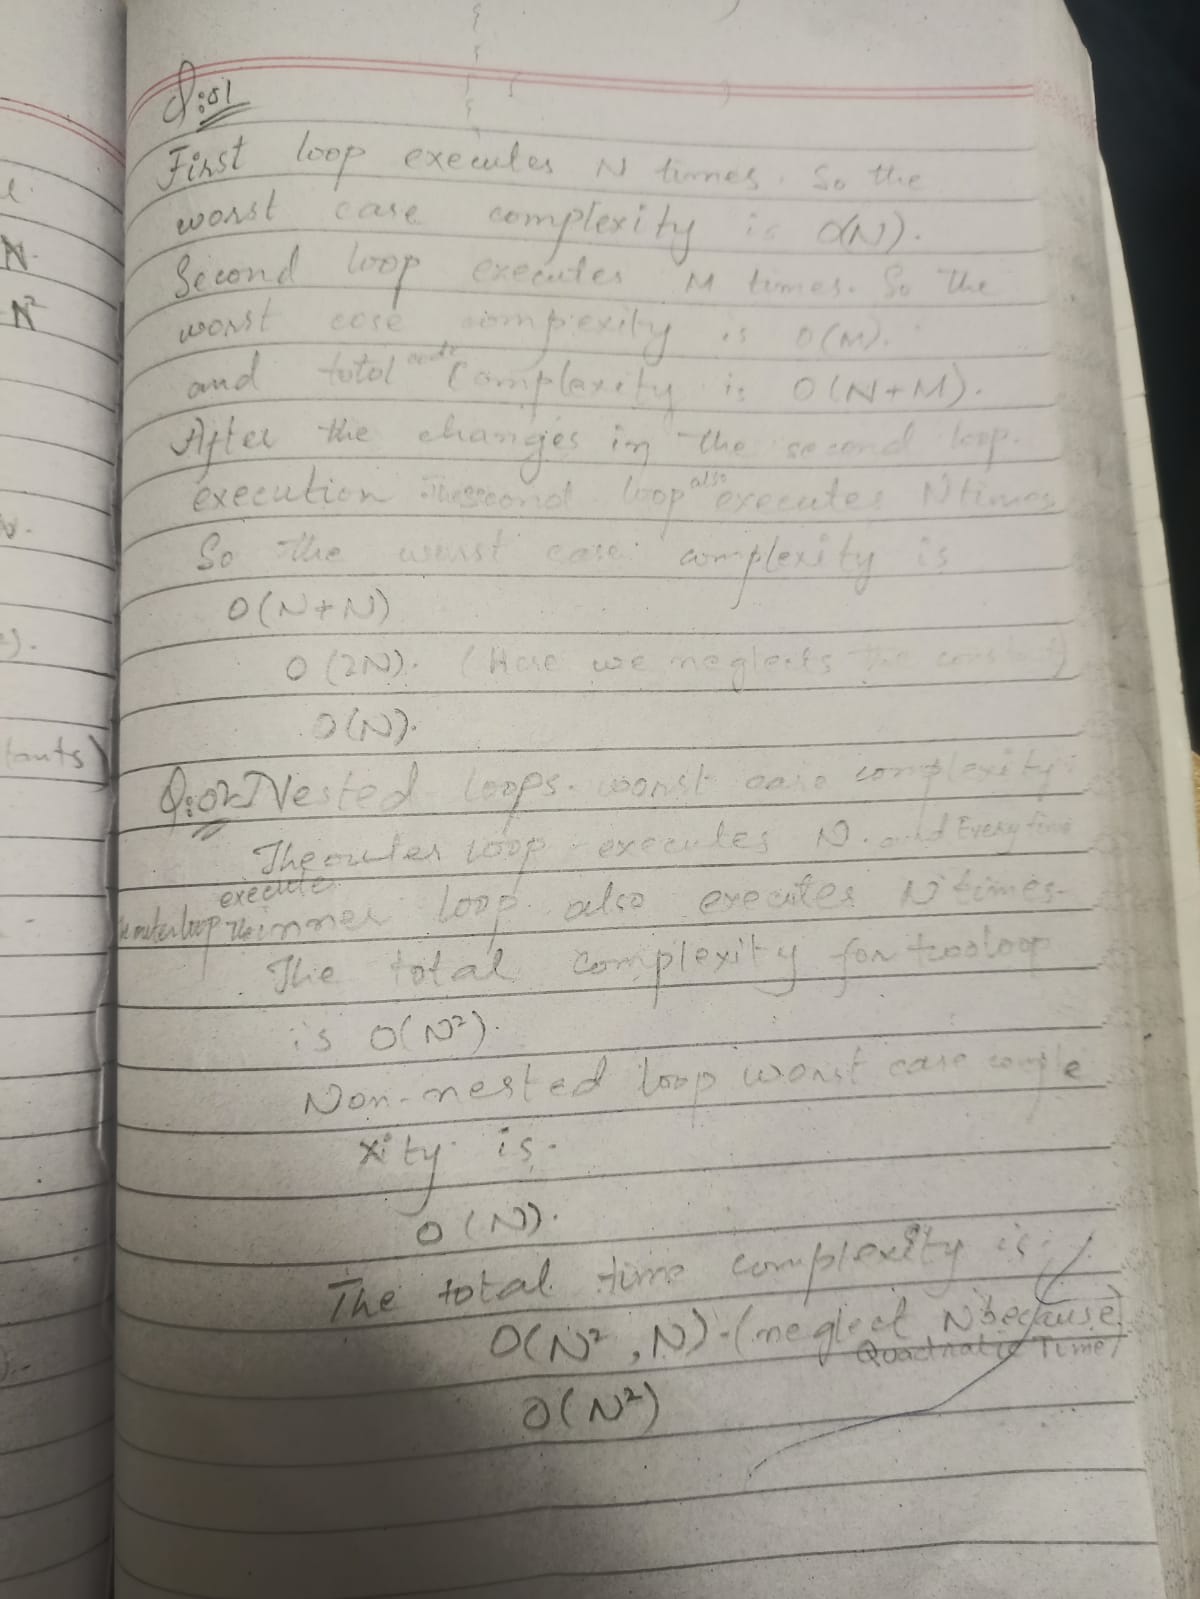 Q:01
First loop executes N times. So the
worst case complexity is O(N).
Second loop executes M times. So the
worst case complexity is O(M).
and total code Complexity is O(N+M).
After the changes in the second loop.
execution The second loop also executes N times
So the worst case complexity is
O(N+N)
O(2N). (Here we neglects the constant)
O(N).
Q:02 Nested loops. worst case complexity:
The outer loop executes N. and Every time
execute
the outer loop The inner loop also executes N times.
The total complexity for two loop
is O(N²).
Non-nested loop worst case comple
xity is.
O(N).
The total time complexity is:
O(N², N) (neglect N because
Quadratic Time)
O(N²)
N.
N²
tants)